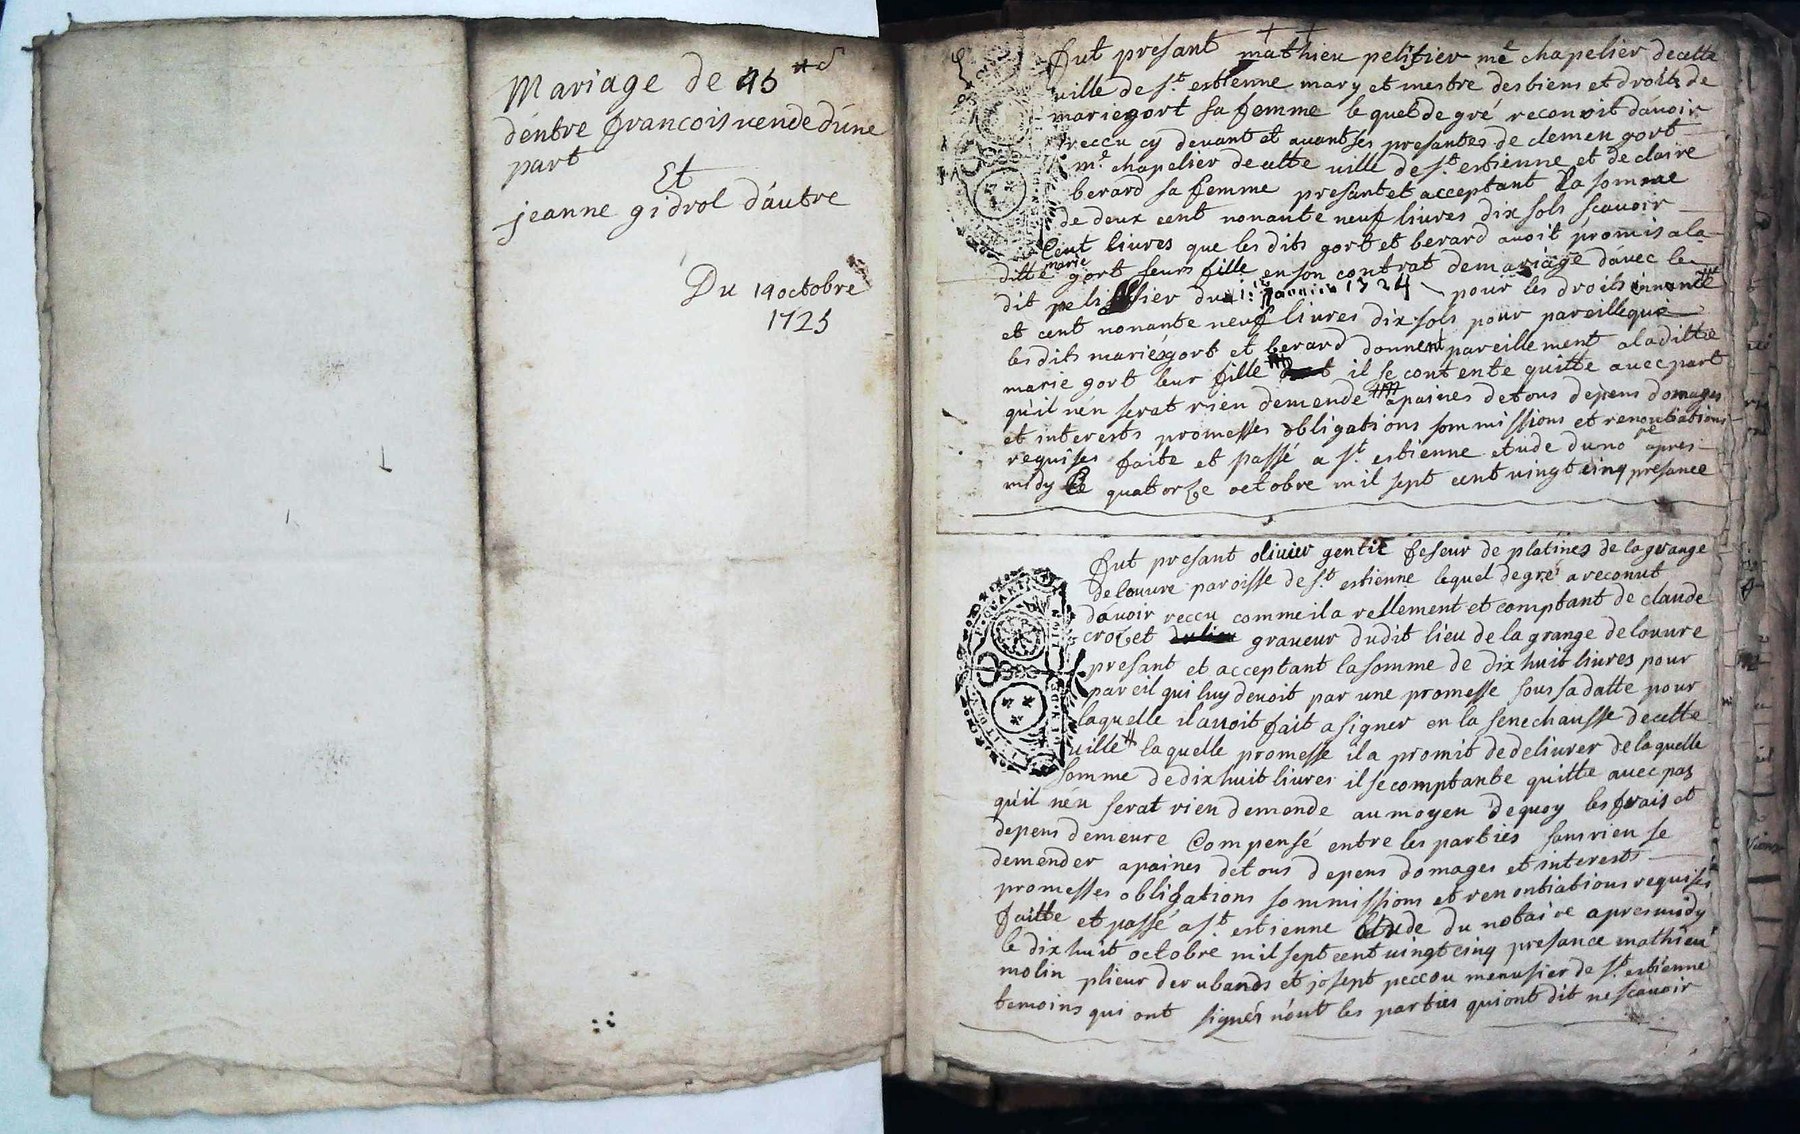 Mariage de 45 ns
déntre francois vende d'úne
part
Et
jeanne gidrol dáutre
Du 19 octobre
1725
fut presant mathieu pelissier me chapelier de cette
ville de st estienne mary et mestre des biens et droits de
marie gort sa femme le quel de gré reconoit dávoir
reccu cy devant et avant ses presantes de clemen gort
me chapelier de cette ville de st estienne et de claire
berard sa femme presant et acceptant la somme
de deux cent nonante neuf livres dix sols scavoir
Cent livres que les dits gort et berard avoit promis a la
ditte marie gort leurs fille en son contrat de mariage dávec le
dit pelissier du janvier 1724 pour les droits
et cent nonante neuf livres dix sols pour pareille que
les dits mariés gort et berard donnent pareillement a la ditte
marie gort leur fille il se contente quitte avec part
qu'il nén serat rien demende a paines de tous depens domages
et interests promesses obligations sommissions et renontiations
requises faite et passé a st estienne etude du nore apres
midy le quatorze octobre mil sept cent vingt cinq presance
fut presant olivier gentit feseur de platines de la grange
de louvre paroisse de st estienne lequel de gré a reconut
dávoir reccu comme il a rellement et comptant de claude
crozet graveur dudit lieu de la grange de louvre
presant et acceptant la somme de dix huit livres pour
pareil qui luy devoit par une promesse sous sa datte pour
laquelle il avoit fait asigner en la senechausse de cette
ville laquelle promesse il a promit de delivrer de laquelle
somme de dix huit livres il se comptante quitte avec pas
qu'il nén serat rien demonde au moyen de quoy les frais et
depens demeure Compensé entre les parties sans rien se
demender a paines de tous depens domages et interests
promesses obligations sommissions et renontiations requises
faitte et passé a st estienne etude du notaire apres midy
le dix huit octobre mil sept cent vingt cinq presance mathieu
molin plieur de rubands et josept peccou menusier de st estienne
temoins qui ont signés nónt les parties qui ont dit ne scavoir